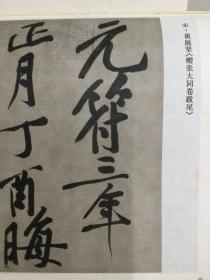 宋·黄庭坚《赠张大同卷跋尾》
元符三年
正月丁酉晦